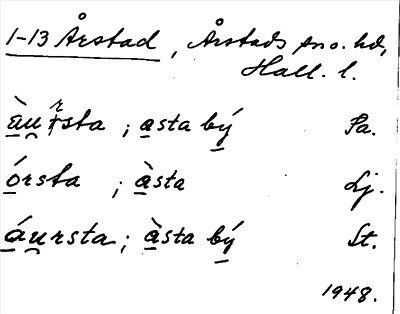 1-13 Årstad, Årstads sn o. hd,
Hall. l.
àu̯rsta ; a̲sta bý̲ Sa.
ó̲rsta ; à̲sta Lj.
á̲u̯rsta ; à̲sta bý̲ St.
1948.